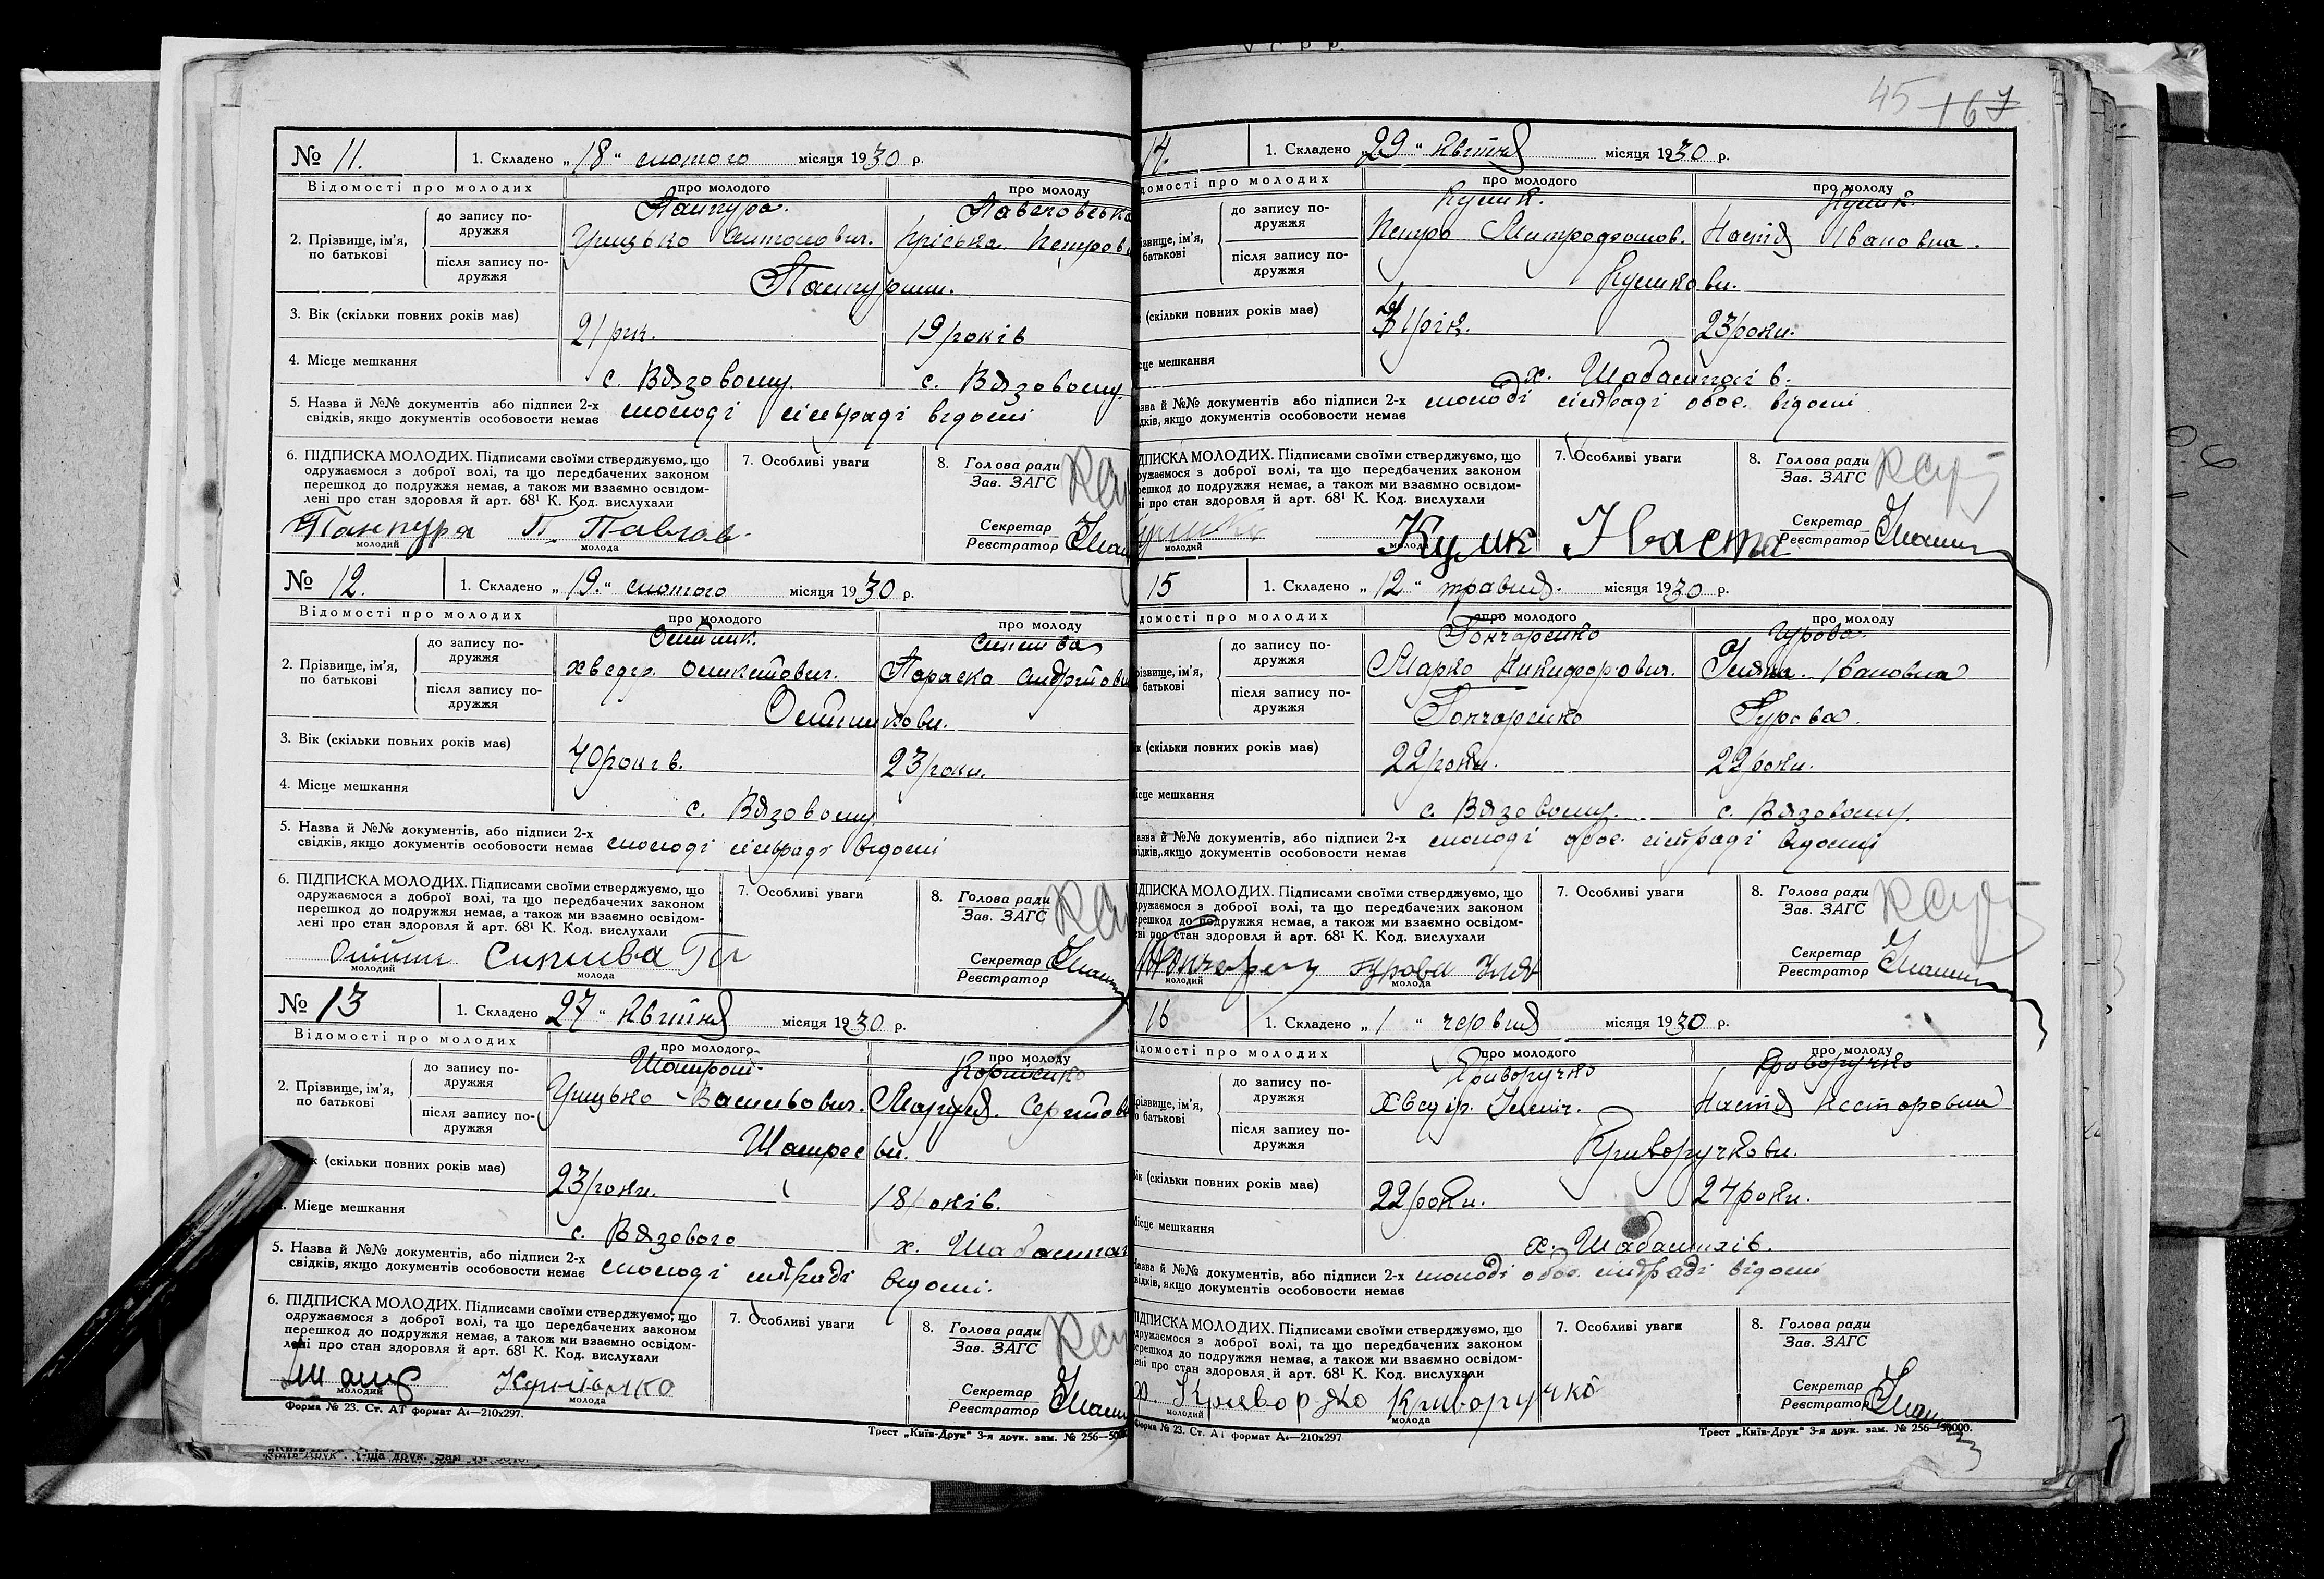 45 167
№ 11. 1. Складено „18" лютого місяця 1930 р.
Відомості про молодих про молодого про молоду
2. Прізвище, ім'я, по батькові
до запису по-
дружжя
Пампура. Павловська
Грицько Антонович. Пріська Петровн
після запису по-
дружжя
3. Вік (скільки повних років має) 21 рік. 19 років
4. Місце мешкання с. Вязовому. с. Вязовому.
5. Назва й №№ документів або підписи 2-х молоді сільраді відомі
свідків, якщо документів особовости немає
6. ПІДПИСКА МОЛОДИХ. Підписами своїми стверджуємо, що
одружаємося з доброї волі, та що передбачених законом
перешкод до подружжя немає, а також ми взаємно освідом-
лені про стан здоров'я й арт. 68¹ К. Код. вислухали
7. Особливі уваги
8. Голова ради
Зав. ЗАГС
Секретар
Реєстратор
П. Павлов.
молодий молода
№ 12. 1. Складено „19." лютого місяця 1930 р.
Відомості про молодих про молодого про молоду
2. Прізвище, ім'я,
по батькові
до запису по-
дружжя
Параска Андріївн
після запису по-
дружжя
3. Вік (скільки повних років має) 40 років. 23 роки.
4. Місце мешкання с. Вязовому.
5. Назва й №№ документів, або підписи 2-х молоді сільраді відомі
свідків, якщо документів особовости немає
6. ПІДПИСКА МОЛОДИХ. Підписами своїми стверджуємо, що
одружаємося з доброї волі, та що передбачених законом
перешкод до подружжя немає, а також ми взаємно освідом-
лені про стан здоров'я й арт. 68¹ К. Код. вислухали
7. Особливі уваги
8. Голова ради
Зав. ЗАГС
Секретар
Реєстратор
молодий молода
№ 13 1. Складено 27 " Квітня місяця 1930 р.
Відомості про молодих про молодого про молоду
2. Прізвище, ім'я,
по батькові
до запису по-
дружжя
Корнієнко
Грицько Васильович. Марія Сергіївн
після запису по-
дружжя
(скільки повних років має) 23 роки. 18 років.
Місце мешкання с. Вязового х.
5. Назва й №№ документів, або підписи 2-х молоді сільраді відомі.
свідків, якщо документів особовости немає
6. ПІДПИСКА МОЛОДИХ. Підписами своїми стверджуємо, що
одружаємося з доброї волі, та що передбачених законом
перешкод до подружжя немає, а також ми взаємно освідом-
лені про стан здоров'я й арт. 68¹ К. Код. вислухали
7. Особливі уваги
8. Голова ради
Зав. ЗАГС
Секретар
Реєстратор
молодий молода
Форма № 23. Ст. АТ формат А₄—210x297.
Трест „Київ-Друк" 3-я друк. зам. № 256—50000
14. 1. Складено „29" Квітня місяця 1930 р.
домості про молодих про молодого про молоду
ізвище, ім'я,
батькові
до запису по-
дружжя
Кулик. Кулик.
Петро Митрофанов. Настя Івановна.
після запису по-
дружжя
Куликови.
(скільки повних років має) 23 роки.
це мешкання х.
зва й №№ документів або підписи 2-х молоді сільраді обоє. відомі
дків, якщо документів особовости немає
ДПИСКА МОЛОДИХ. Підписами своїми стверджуємо, що
ружаємося з доброї волі, та що передбачених законом
ешкод до подружжя немає, а також ми взаємно освідом-
ні про стан здоров'я й арт. 68¹ К. Код. вислухали
7. Особливі уваги
8. Голова ради
Зав. ЗАГС
Секретар
Реєстратор
Кулик Наста
молодий молода
15 1. Складено „12" травня. місяця 1930 р.
домості про молодих про молодого про молоду
різвище, ім'я,
батькові
до запису по-
дружжя
Гончаренко Гурова.
Марко Никифорович. Уляна. Івановна
після запису по-
дружжя
Гончаренко Гурова.
к (скільки повних років має) 22 роки. 22 роки.
ісце мешкання с. Вязовому. с. Вязовому.
азва й №№ документів, або підписи 2-х молоді обоє. сільраді відомі
відків, якщо документів особовости немає
ІДПИСКА МОЛОДИХ. Підписами своїми стверджуємо, що
дружаємося з доброї волі, та що передбачених законом
ерешкод до подружжя немає, а також ми взаємно освідом-
ені про стан здоров'я й арт. 68¹ К. Код. вислухали
7. Особливі уваги
8. Голова ради
Зав. ЗАГС
Секретар
Реєстратор
гурова Уля
молодий молода
16 1. Складено „1 " червня місяця 1930 р.
ідомості про молодих про молодого про молоду
різвище, ім'я,
о батькові
до запису по-
дружжя
Криворучко Криворучко
Хведір. Ілліч. Настя Несторовна
після запису по-
дружжя
Криворучкови.
ік (скільки повних років має) 22 роки. 24 роки.
ісце мешкання х.
азва й №№ документів, або підписи 2-х молоді обоє. сільраді відомі
відків, якщо документів особовости немає
ПІДПИСКА МОЛОДИХ. Підписами своїми стверджуємо, що
дружаємося з доброї волі, та що передбачених законом
ерешкод до подружжя немає, а також ми взаємно освідом-
ені про стан здоров'я й арт. 68¹ К. Код. вислухали
7. Особливі уваги
8. Голова ради
Зав. ЗАГС
Секретар
Реєстратор
Криворучко
молодий молода
Форма № 23. Ст. АТ формат А₄—210x297
Трест „Київ-Друк" 3-я друк. зам. № 256—50000.